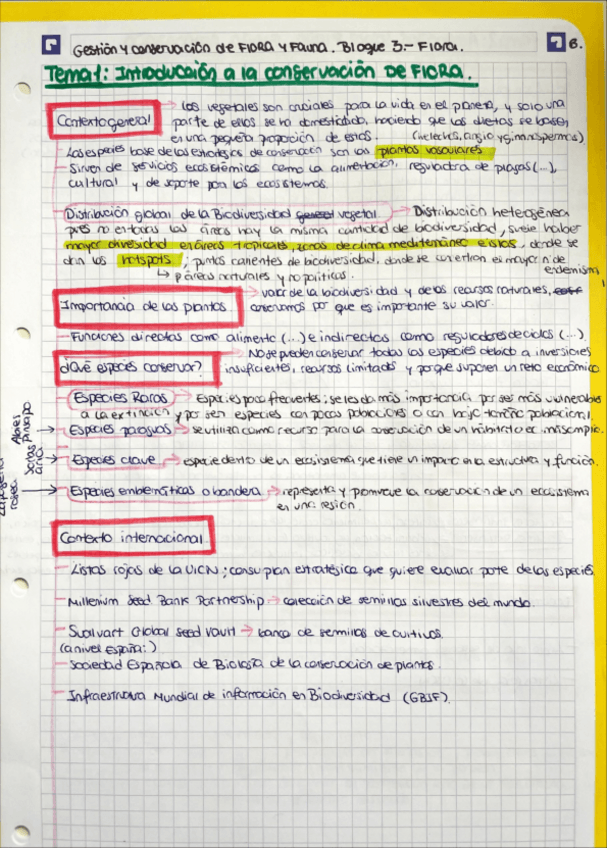 Gestión y conservación de FLORA y Fauna. Bloque 3.- Flora. 6.
Tema 1: Introducción a la conservación DE FLORA.
Contexto general → Los vegetales son cruciales para la vida en el planeta, y solo una
parte de ellos se ha domesticado, haciendo que las dietas se basen
en una pequeña proporción de estos. (helechos, angio y gimnospermas)
- Las especies base de las estrategias de conservación son las plantas vasculares
- Sirven de servicios ecosistémicos como la alimentación, reguladora de plagas (...),
cultural y de soporte para los ecosistemas.
- Distribución global de la Biodiversidad general vegetal → Distribución heterogénea
pues no en todas las áreas hay la misma cantidad de biodiversidad, suele haber
mayor diversidad en áreas tropicales, zonas de clima mediterráneo e islas, donde se
dan los hotspots; puntos calientes de biodiversidad, donde se concentran el mayor n de
endemism
↳ áreas naturales y no políticas.
Importancia de las plantas. → valor de la biodiversidad y de los recursos naturales,
conservamos por que es importante su valor.
- Funciones directas como alimento (...) e indirectas como reguladores de ciclos (...)
¿Qué especies conservar? → No se pueden conservar todas las especies debido a inversiones
insuficientes, recursos limitados y porque suponen un reto económico
- Especies Raras → Especies poco frecuentes, se les da más importancia por ser más vulnerables
a la extinción y por ser especies con pocas poblaciones o con bajo tamaño poblacional.
→ Especies paraguas → se utiliza como recurso para la conservación de un hábitat o ec. más amplio.
→ Especies clave → especie dentro de un ecosistema que tiene un impacto en la estructura y función.
→ Especies emblemáticas o bandera → representa y promueve la conservación de un ecosistema
en una región.
Contexto internacional
- Listas rojas de la UICN; con su plan estratégico que quiere evaluar parte de las especies.
- Millenium Seed Bank Partnership → colección de semillas silvestres del mundo.
- Svalvart Global Seed Vault → banco de semillas de cultivos.
(a nivel España:)
- Sociedad Española de Biología de la conservación de plantas.
- Infraestructura Mundial de información en Biodiversidad (GBIF).